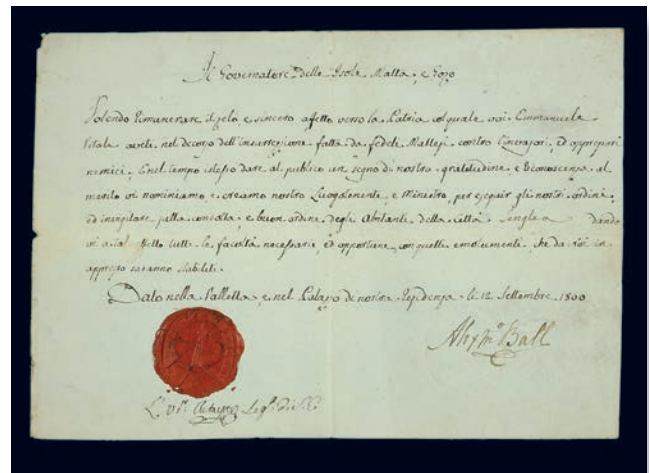 Il Governatore delle Isole Malta, e Gozo
Volendo rimunerare il zelo e sincero affetto verso la Patria col quale voi Emmanuele
Vitale avete nel decorso dell'insurrezione fatta da fedeli Maltesi contro gl'invasori, ed oppressori
nemici; e nel tempo istesso dare al publico un segno di nostra gratitudine, e riconoscenza al
merito vi nominiamo, e creamo nostro Luogotenente, e Ministro, per eseguir gli nostri ordini,
ed invigilare pella condotta e buon ordine degli Abitante della Città Senglea dando
vi a tal effetto tutte le facoltà necessarie, ed opportune, con quelle emolumenti che da Noi in
appresso saranno stabiliti.
Dato nella Valletta, e nel Palazzo di nostra Residenza li 12 Settembre 1800
Alexr. Ball